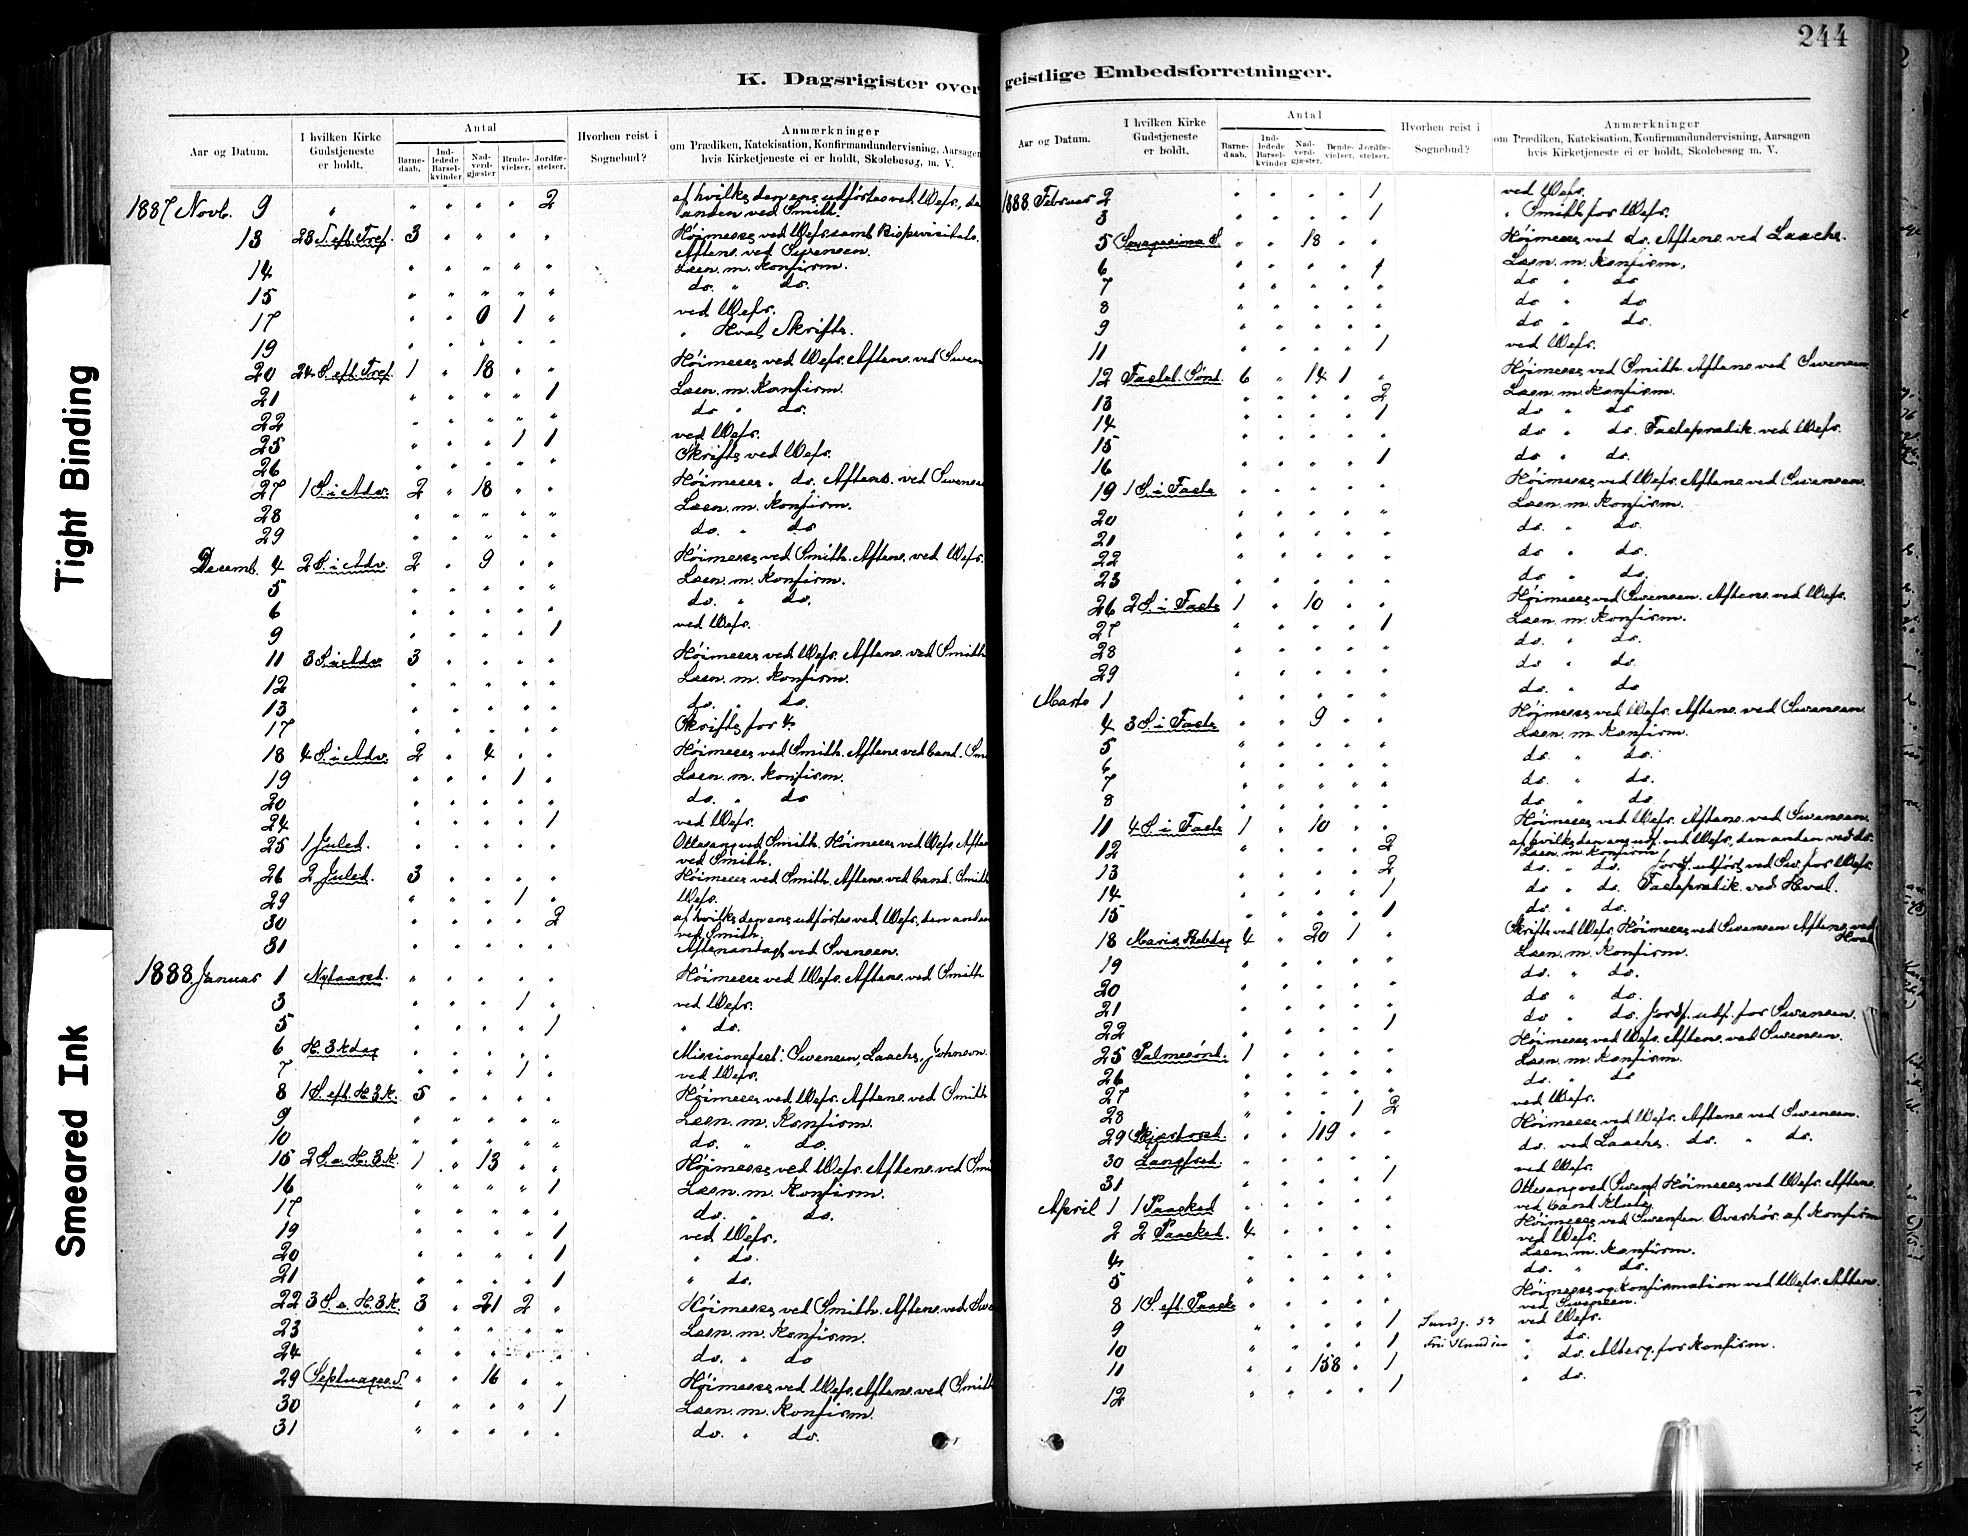 244
K. Dagsrigister over geistlige Embedsforretninger.
Aar og Datum. | I hvilken Kirke Gudstjeneste er holdt. | Antal | Barnedaab. | Indledede Barselkvinder | Nadverdgjæster | Brudevielser. | Jordfæstelser. | Hvorhen reist i Sognebud? | Anmærkninger om Prædiken, Katekisation, Konfirmandundervisning, Aarsagen hvis Kirketjeneste ei er holdt, Skolebesøg, m. V.
1887 Novb. 9 " " " " " 2 af hvilke den ene udførtes ved Wefr., den anden ved Smith.
13 23 S. eft. Tref. 3 " " " " Høimesse ved Wefr. samt Bispevisitats. Aftens. ved Svensen.
14 " " " " " Læsn. m. Konfirm.
15 " " " " " do. " do.
17 " " 0 1 " ved Wefr.
19 " " " " " " Hval, Skrifte.
20 24 S. eft. Tref. 1 " 18 " " Høimesse ved Wefr. Aftens. ved Svens
21 " " " " 1 Læsn. m. Konfirm.
22 " " " " " do " do.
25 " " " 1 1 ved Wefr.
26 " " " " " Skrifte ved Wefr.
27 1 S. i Adv. 2 " 18 " " Høimesse " do. Aftens. ved Svensen
28 " " " " " Læsn. m. Konfirm.
29 " " " " " do. " do
Decemb. 4 2 S. i Adv. 2 " 9 " " Høimesse ved Smith. Aftens. ved Wefr.
5 " " " " " Læsn. m. Konfirm.
6 " " " " " do. " do.
9 " " " " 1 ved Wefr.
11 3 S. i Adv. 3 " " " " Høimesse ved Wefr. Aftens. ved Smith
12 " " " " " Læsn. m. Konfirm.
13 " " " " " do. " do.
17 " " " " " Skrifte for 4.
18 4 S. i Adv. 2 " 4 " " Høimesse ved Smith. Aftens. ved Cand. Sm
19 " " " 1 " Læsn. m. Konfirm.
20 " " " " " do. " do
24 " " " " 1 ved Wefr.
25 1 Juled. " " " " " Ottesang ved Smith. Høimesse ved Wefr. Aftens ved Smith.
26 2 Juled. 3 " " " " Høimesse ved Smith. Aftens. ved Cand. Smith
29 " " " 1 " Wefr.
30 " " " " 2 af hvilke den ene udførtes ved Wefr., den anden ved Smith.
31 " " " " " Aftenandagt ved Svensen.
1888. Januar 1 Nytaarsd. " " " " " Høimesse ved Wefr. Aftens. ved Smith
3 " " " 1 " ved Wefr.
5 " " " " 1 " do.
6 H. 3 Kdag " " " " " Missionsfest: Svensen, Laache, Johnson.
7 " " " 1 " ved Wefr.
8 1 S. eft. H. 3 K. 5 " " " " Høimesse ved Wefr. Aftens. ved Smith
9 " " " " " Læsn. m. Konfirm.
10 " " " " " do. " do.
15 2 S. e. H. 3 K. 1 " 13 " " Høimesse ved Wefr. Aftens. ved Smi
16 " " " " 1 Læsn. m. Konfirm.
17 " " " " " do. " do.
19 " " " " 1 ved Wefr.
20 " " " " 1 " do.
21 " " " " 1 " do.
22 3 S. e. H. 3 K. 3 " 21 2 " Høimesse ved Smith. Aftens. ved Sve
23 " " " " " Læsn. m. Konfirm.
24 " " " " " do. " do
29 Septuages. S. " " 16 " " Høimesse ved Wefr. Aftens. ved Smith
30 " " " " 1 Læsn. m. Konfirm.
31 " " " " " do. " do.
Aar og Datum. | I hvilken Kirke Gudstjeneste er holdt. | Antal | Barnedaab. | Indledede Barselkvinder | Nadverdgjæster. | Brudevielser. | Jordfæstelser. | Hvorhen reist i Sognebud? | Anmærkninger om Prædiken, Katekisation, Konfirmandundervisning, Aarsagen hvis Kirketjeneste ei er holdt, Skolebesøg, m. V.
1888. Februar 2 " " " " 1 ved Wefr.
3 " " " " 1 " Smith for Wefr.
5 Sexagesima S. " " 18 " " Høimesse ved do. Aftens. ved Laache.
6 " " " " 1 Læsn. m. Konfirm.
7 " " " " " do " do
8 " " " " " do " do
9 " " " " " do " do.
11 " " " " 1 ved Wefr.
12 Fastel. Sønd. 6 " 14 1 " Høimesse ved Smith. Aftens. ved Svensen.
13 " " " " 2 Læsn. m. Konfirm.
14 " " " " 1 do " do
15 " " " " " do " do. Fasteprædik. ved Wefr.
16 " " " " 1 do " do.
19 1 S. i Faste " " " " " Høimesse ved Wefr. Aftens. ved Svensen.
20 " " " " " Læsn. m. Konfirm.
21 " " " " " do. " do.
22 " " " " " do " do.
23 " " " " " do " do.
26 2 S. i Faste 1 " 10 " " Høimesse ved Svensen. Aftens. ved Wefr.
27 " " " " 1 Læsn. m. Konfirm.
28 " " " " " do. " do.
29 " " " " " do " do.
Marts 1 " " " " " do. " do
4 3 S. i Faste " " 9 " " Høimesse ved Wefr. Aftens. ved Svensen.
5 " " " " " Læsn. m. Konfirm.
6 " " " " " do " do.
7 " " " " " do. " do.
8 " " " " " do " do
11 4 S. i Faste 1 " 10 " " Høimesse ved Wefr. Aftens. ved Svensen.
12 " " " " 2 af hvilke den ene udf. ved Wefr., den anden ved do. Læsn. m. Konfirm.
13 " " " " 2 do. " do. Jordf. udført ved Sv. for Wefr.
14 " " " " 1 do " do. Fasteprædik. ved Hval.
15 " " " " 1 do. " do.
18 Mariæ Bebdag 4 " 20 1 " Skrifte ved Wefr. Høimesse ved Svensen. Aftens. ved Hval
19 " " " " " Læsn. m. Konfirm.
20 " " " " " do. " do.
21 " " " " " do " do.
22 " " " " 1 do " do. Jordf. udf. for Svensen.
25 Palmesønd. 1 " " " " Høimesse ved Wefr. Aftens. ved Svensen.
26 " " " " " Læsn. m. Konfirm.
27 " " " " " do. " do
28 " " " 1 2 ved Wefr.
29 Skjærtorsd. " " 119 " " Høimesse ved Wefr. Aftens. ved Svensen.
30 Langfred. " " " " " do. ved Laache. do. " do.
31 " " " " 1 ved Wefr.
April 1 1 Paasked " " " " " Ottesang ved Svens. Høimesse ved Wefr. Aftens. ved Cand.
2 2 Paasked. 4 " " " " Høimesse ved Svensen. Overhør. af Konfirm ved Wefr.
4 " " " " " Læsn. m. Konfirm.
5 " " " " " do. " do.
8 1 S. eft. Paaske " " " " " Høimesse og Konfirmation ved Wefr. Aftens. ved Svensen.
9 " " " " 1 ved Wefr.
10 " " " " 1 " do.
11 " " 158 " 1 " do. Alterg. for Konfirm.
12 " " " " 1 " do.
Tight Binding
Smeared Ink